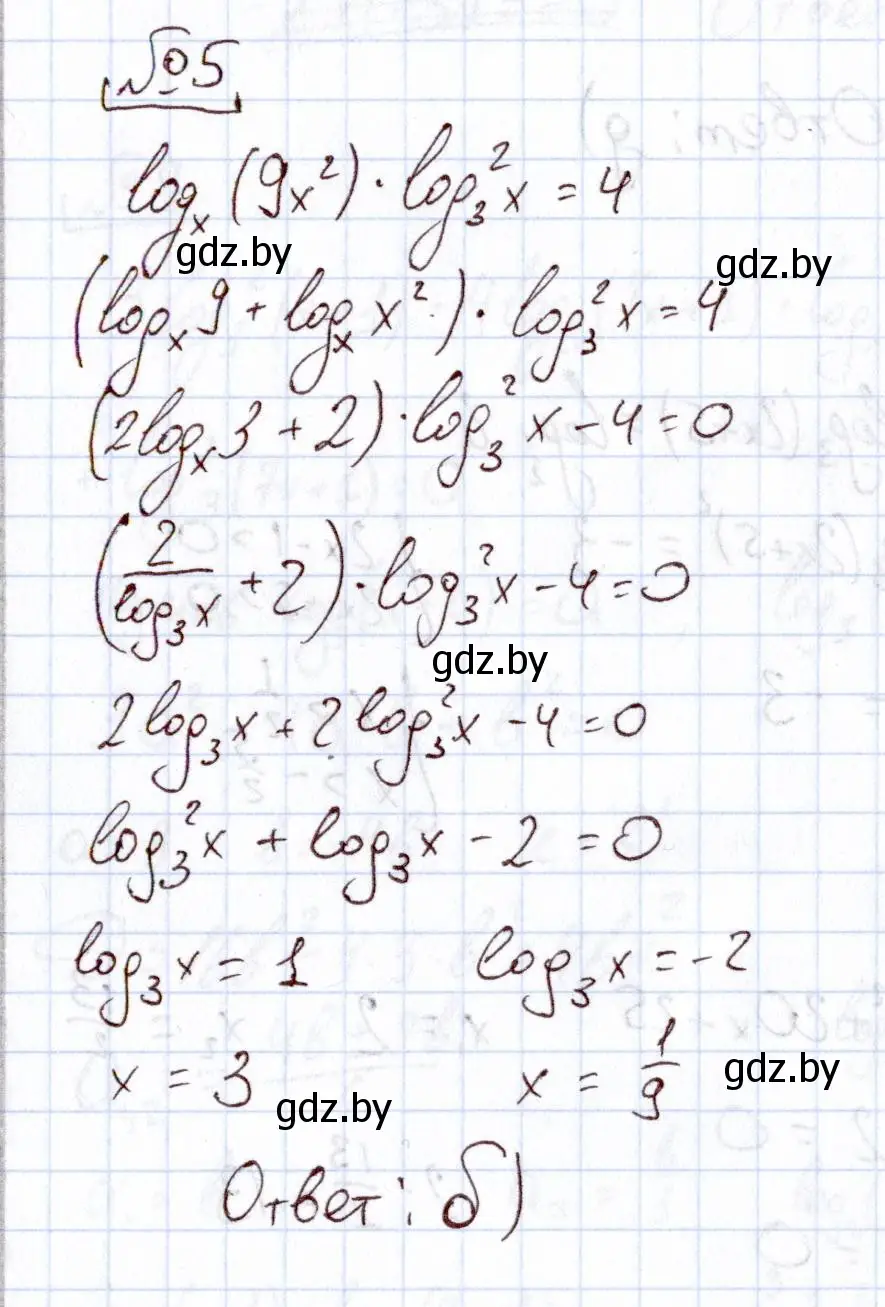 №5
logₓ(9x²) · log₃²x = 4
gdz.by
gdz.by
(logₓ9 + logₓx²) · log₃²x = 4
(2logₓ3 + 2) · log₃²x - 4 = 0
(2/log₃x + 2) · log₃²x - 4 = 0
gdz.by
2log₃x + 2log₃²x - 4 = 0
log₃²x + log₃x - 2 = 0
log₃x = 1    log₃x = -2
x = 3    x = 1/9
gdz.by
gdz.by
Ответ: б)